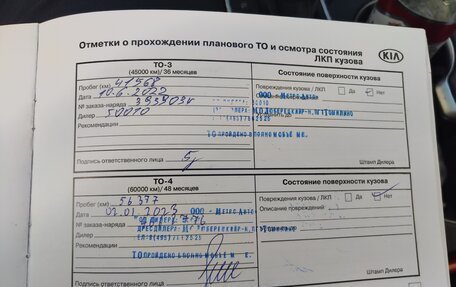 Отметки о прохождении планового ТО и осмотра состояния
ЛКП кузова
KIA
ТО-3
(45000 км)/ 36 месяцев
Состояние поверхности кузова
Пробег (км) 41968
Повреждения кузова / ЛКП Да Нет
Дата 10.6.2022
ООО - Метро Авто
№ заказа-наряда
Дилер 50010
Рекомендации
ТО ПРОЙДЕНО В ПОЛНОМ ОБЪЁМЕ
Подпись ответственного лица
Штамп Дилера
ТО-4
(60000 км)/ 48 месяцев
Состояние поверхности кузова
Пробег (км) 56377
Повреждения кузова / ЛКП Да Нет
Дата 02.01.2023
ООО - Метро Авто
Описание повреждений
№ заказа-наряда
Дилер
Рекомендации
ТО ПРОЙДЕНО В ПОЛНОМ
Подпись ответственного лица
Штамп Дилера